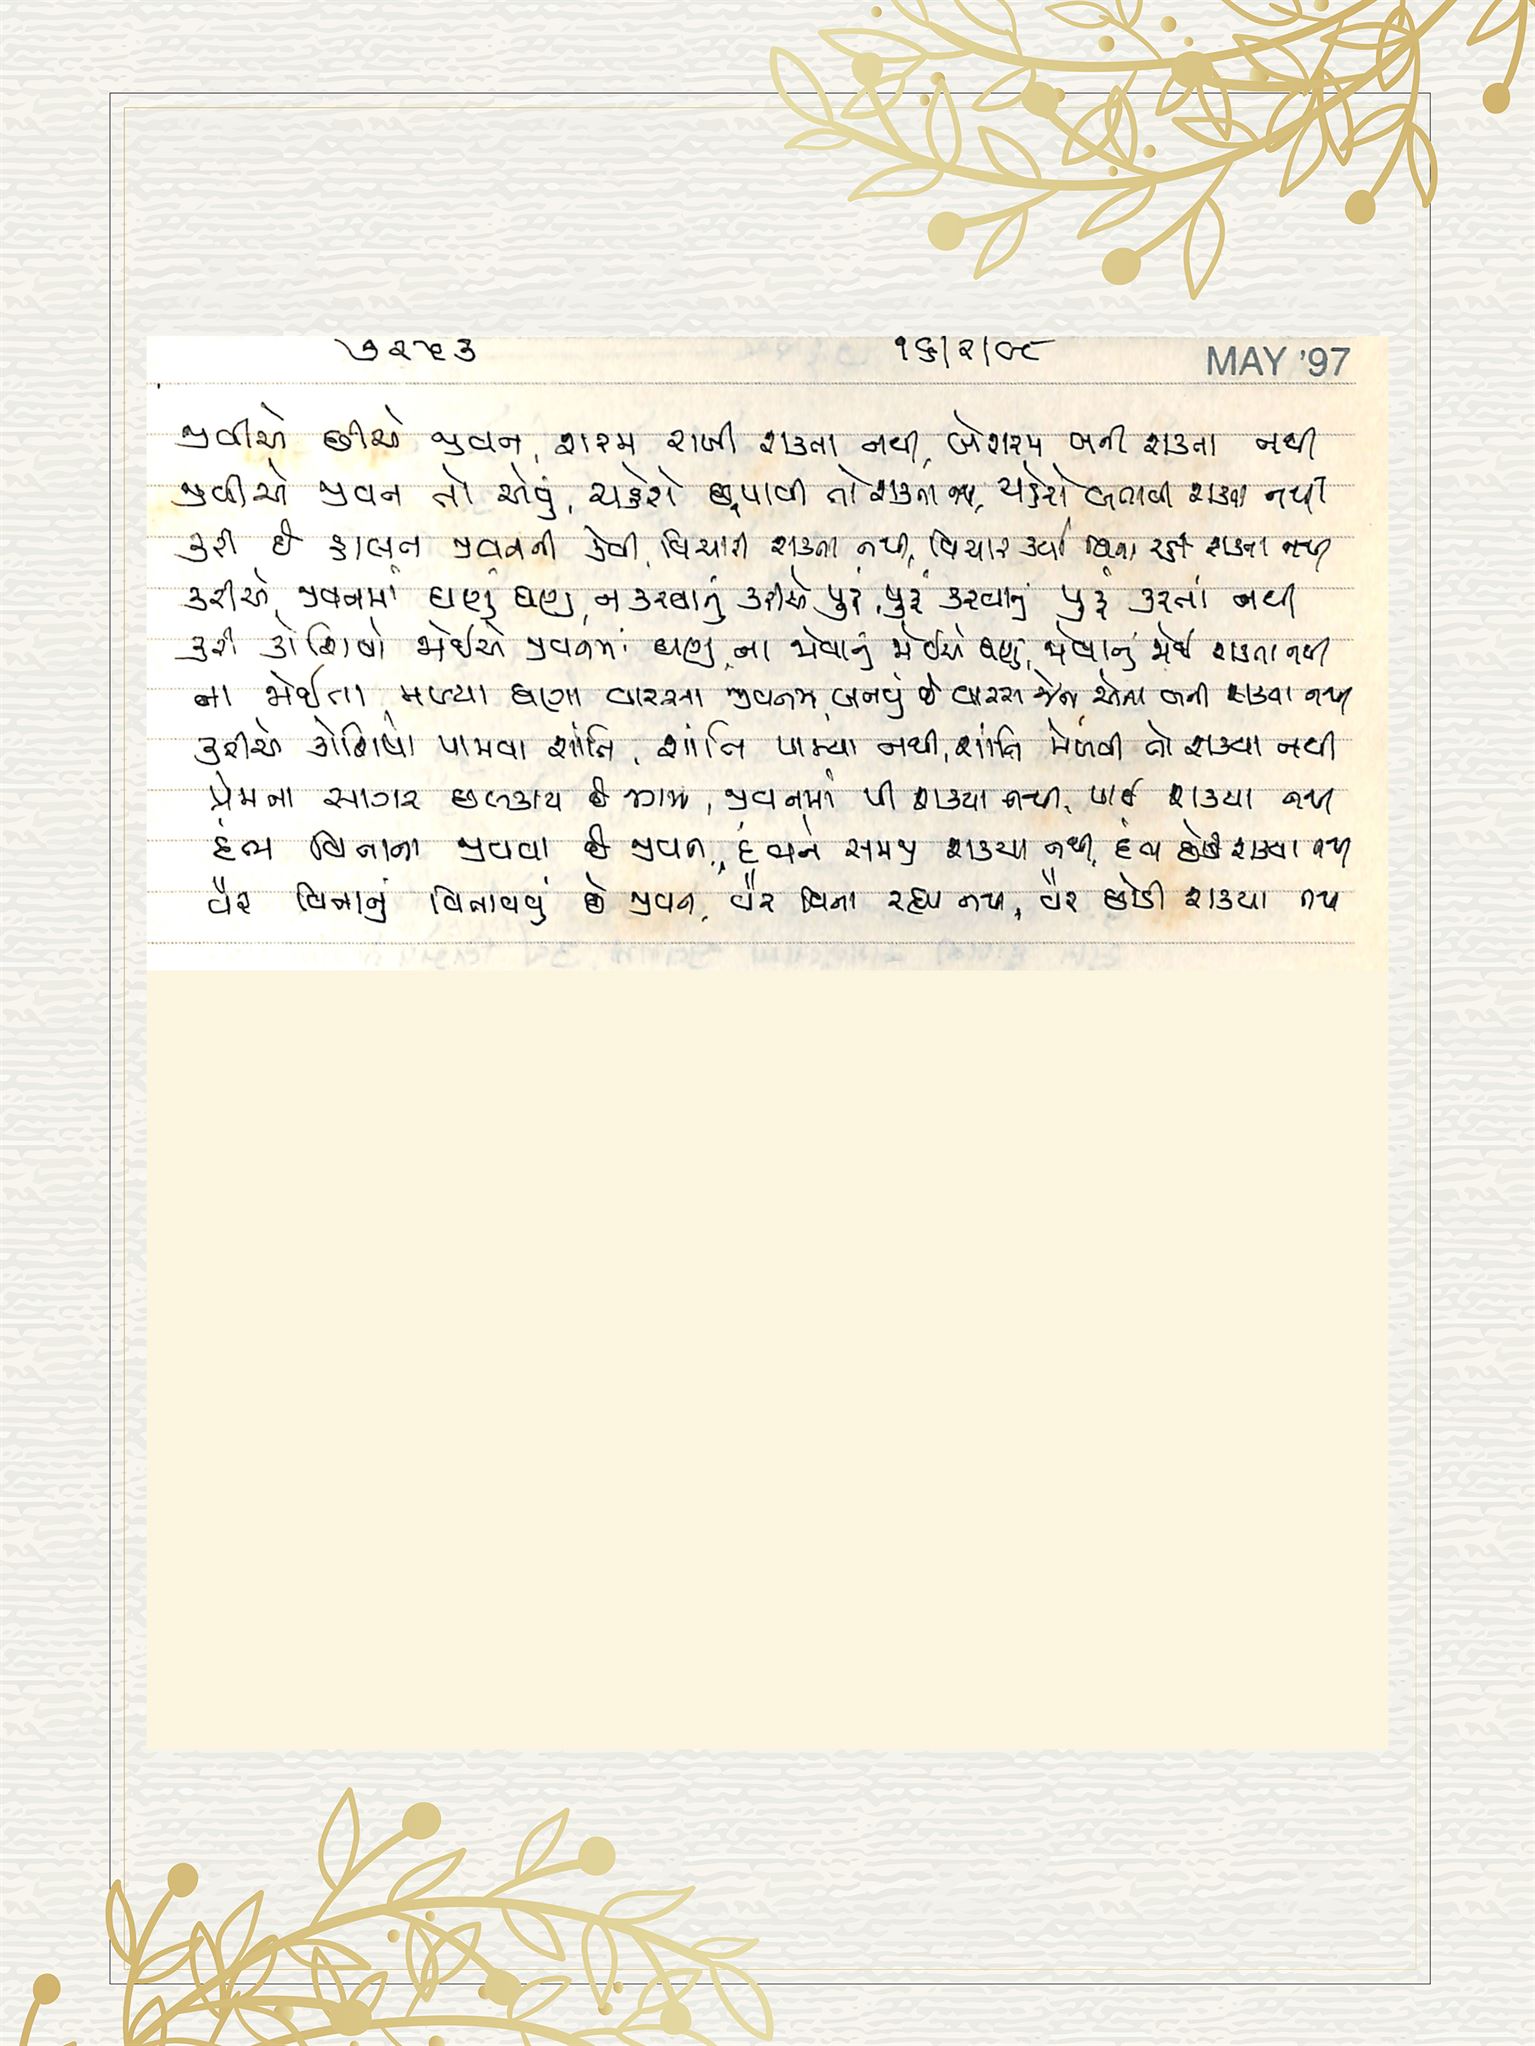 ૭૨૫૩ ૧૬/૨/૯૮ MAY '97
જીવીએ છીએ જીવન, શરમ રાખી શકતા નથી, બેશરમ બની શકતા નથી
જીવીએ જીવન તો એવું, ચહેરો છુપાવી તો શકતા નથી, ચહેરો બતાવી શકતા નથી
કરી છે હાલત જીવનની કેવી, વિચારી શકતા નથી, વિચાર કર્યા વિના રહી શકતા નથી
કરીએ જીવનમાં ઘણું ઘણું, ન કરવાનું કરીએ પુરૂં, પુરૂં કરવાનું પુરૂં કરતાં નથી
કરી કોશિશો જોઈએ જીવનમાં ઘણું, ના જોવાનું જોઈએ ઘણું, જોવાનું જોઈ શકતા નથી
ના જોઈતા, મળ્યા ઘણા વારસા જીવનમાં, બનવું છે વારસ જેના એના બની શક્યા નથી
કરીએ કોશિશો પામવા શાંતિ, શાંતિ પામ્યા નથી, શાંતિ મેળવી તો શક્યા નથી
પ્રેમના સાગર છલકાય છે જગમાં, જીવનમાં પી શક્યા નથી, પાઈ શક્યા નથી
દંભ વિનાના જીવવા છે જીવન, દંભને સમજી શક્યા નથી, દંભ છોડી શક્યા નથી
વૈર વિનાનું વિતાવવું છે જીવન, વૈર વિના રહ્યા નથી, વૈર છોડી શક્યા નથી